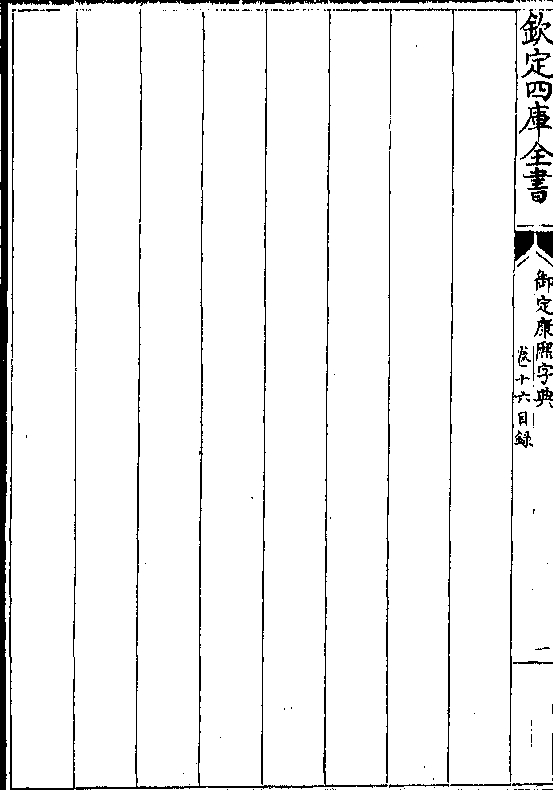 欽定四庫全書
御定康熙字典
卷十六目錄
一